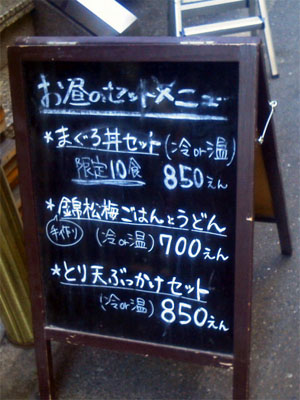 お昼のセットメニュー
*まぐろ丼セット(冷or温)
限定10食 850えん
*錦松梅ごはんとうどん
手作り (冷or温) 700えん
*とり天ぶっかけセット
(冷or温) 850えん